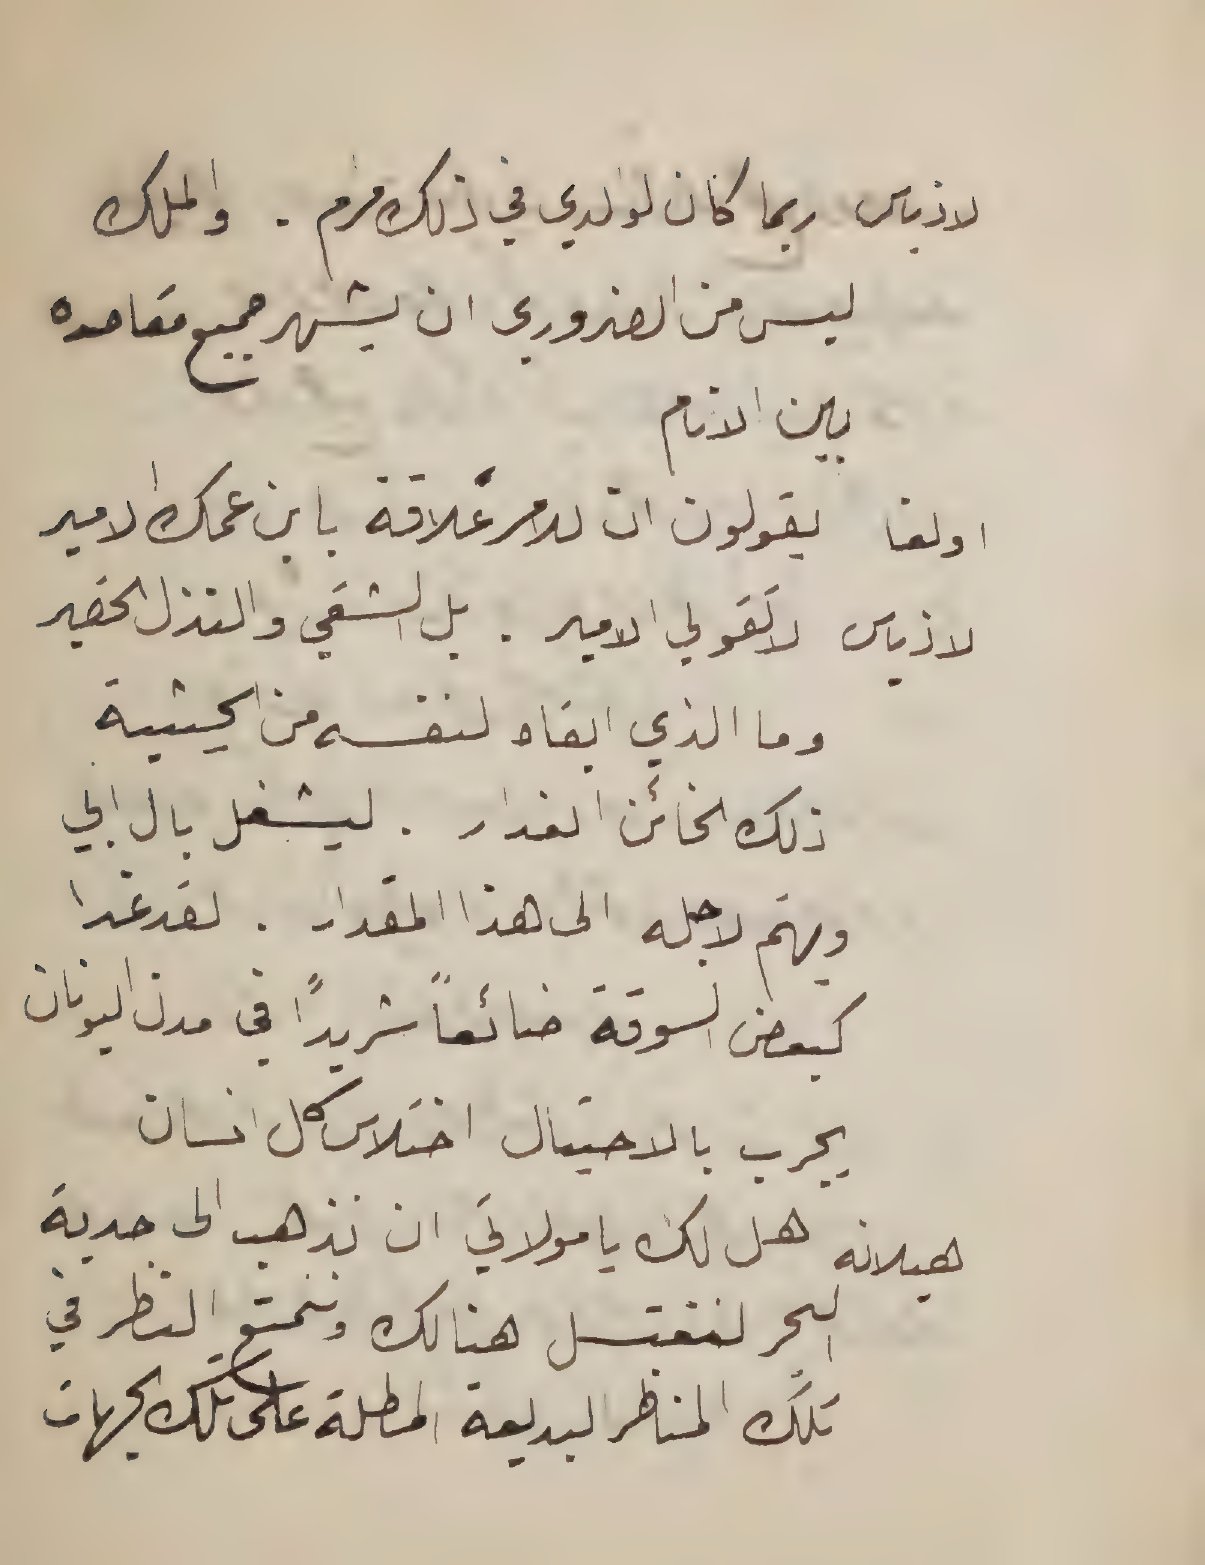 لاذياس ربما كان لوالدي في ذلك مرام . والملك
ليس من الضروري ان يشهر جميع مقاصده
بين الانام
اولغا يقولون ان للامر علاقة بابن عمك الامير
لاذياس لا تقولي الامير . بل الشقي والنذل الحقير
وما الذي ابقاه لنفسه من الحيثية
ذلك الخائن الغدار . ليشغل بال ابي
ويهتم لاجله الى هذا المقدار . لقد غدا
كبعض السوقة ضائعاً شريدًا في مدن اليونان
يجرب بالاحتيال اختلاس كل انسان
هيلانه هل لك يا مولاتي ان نذهب الى جدية
البحر لنغتسل هنالك ونمتع النظر في
تلك المناظر البديعة المطلة على تلك الجهات